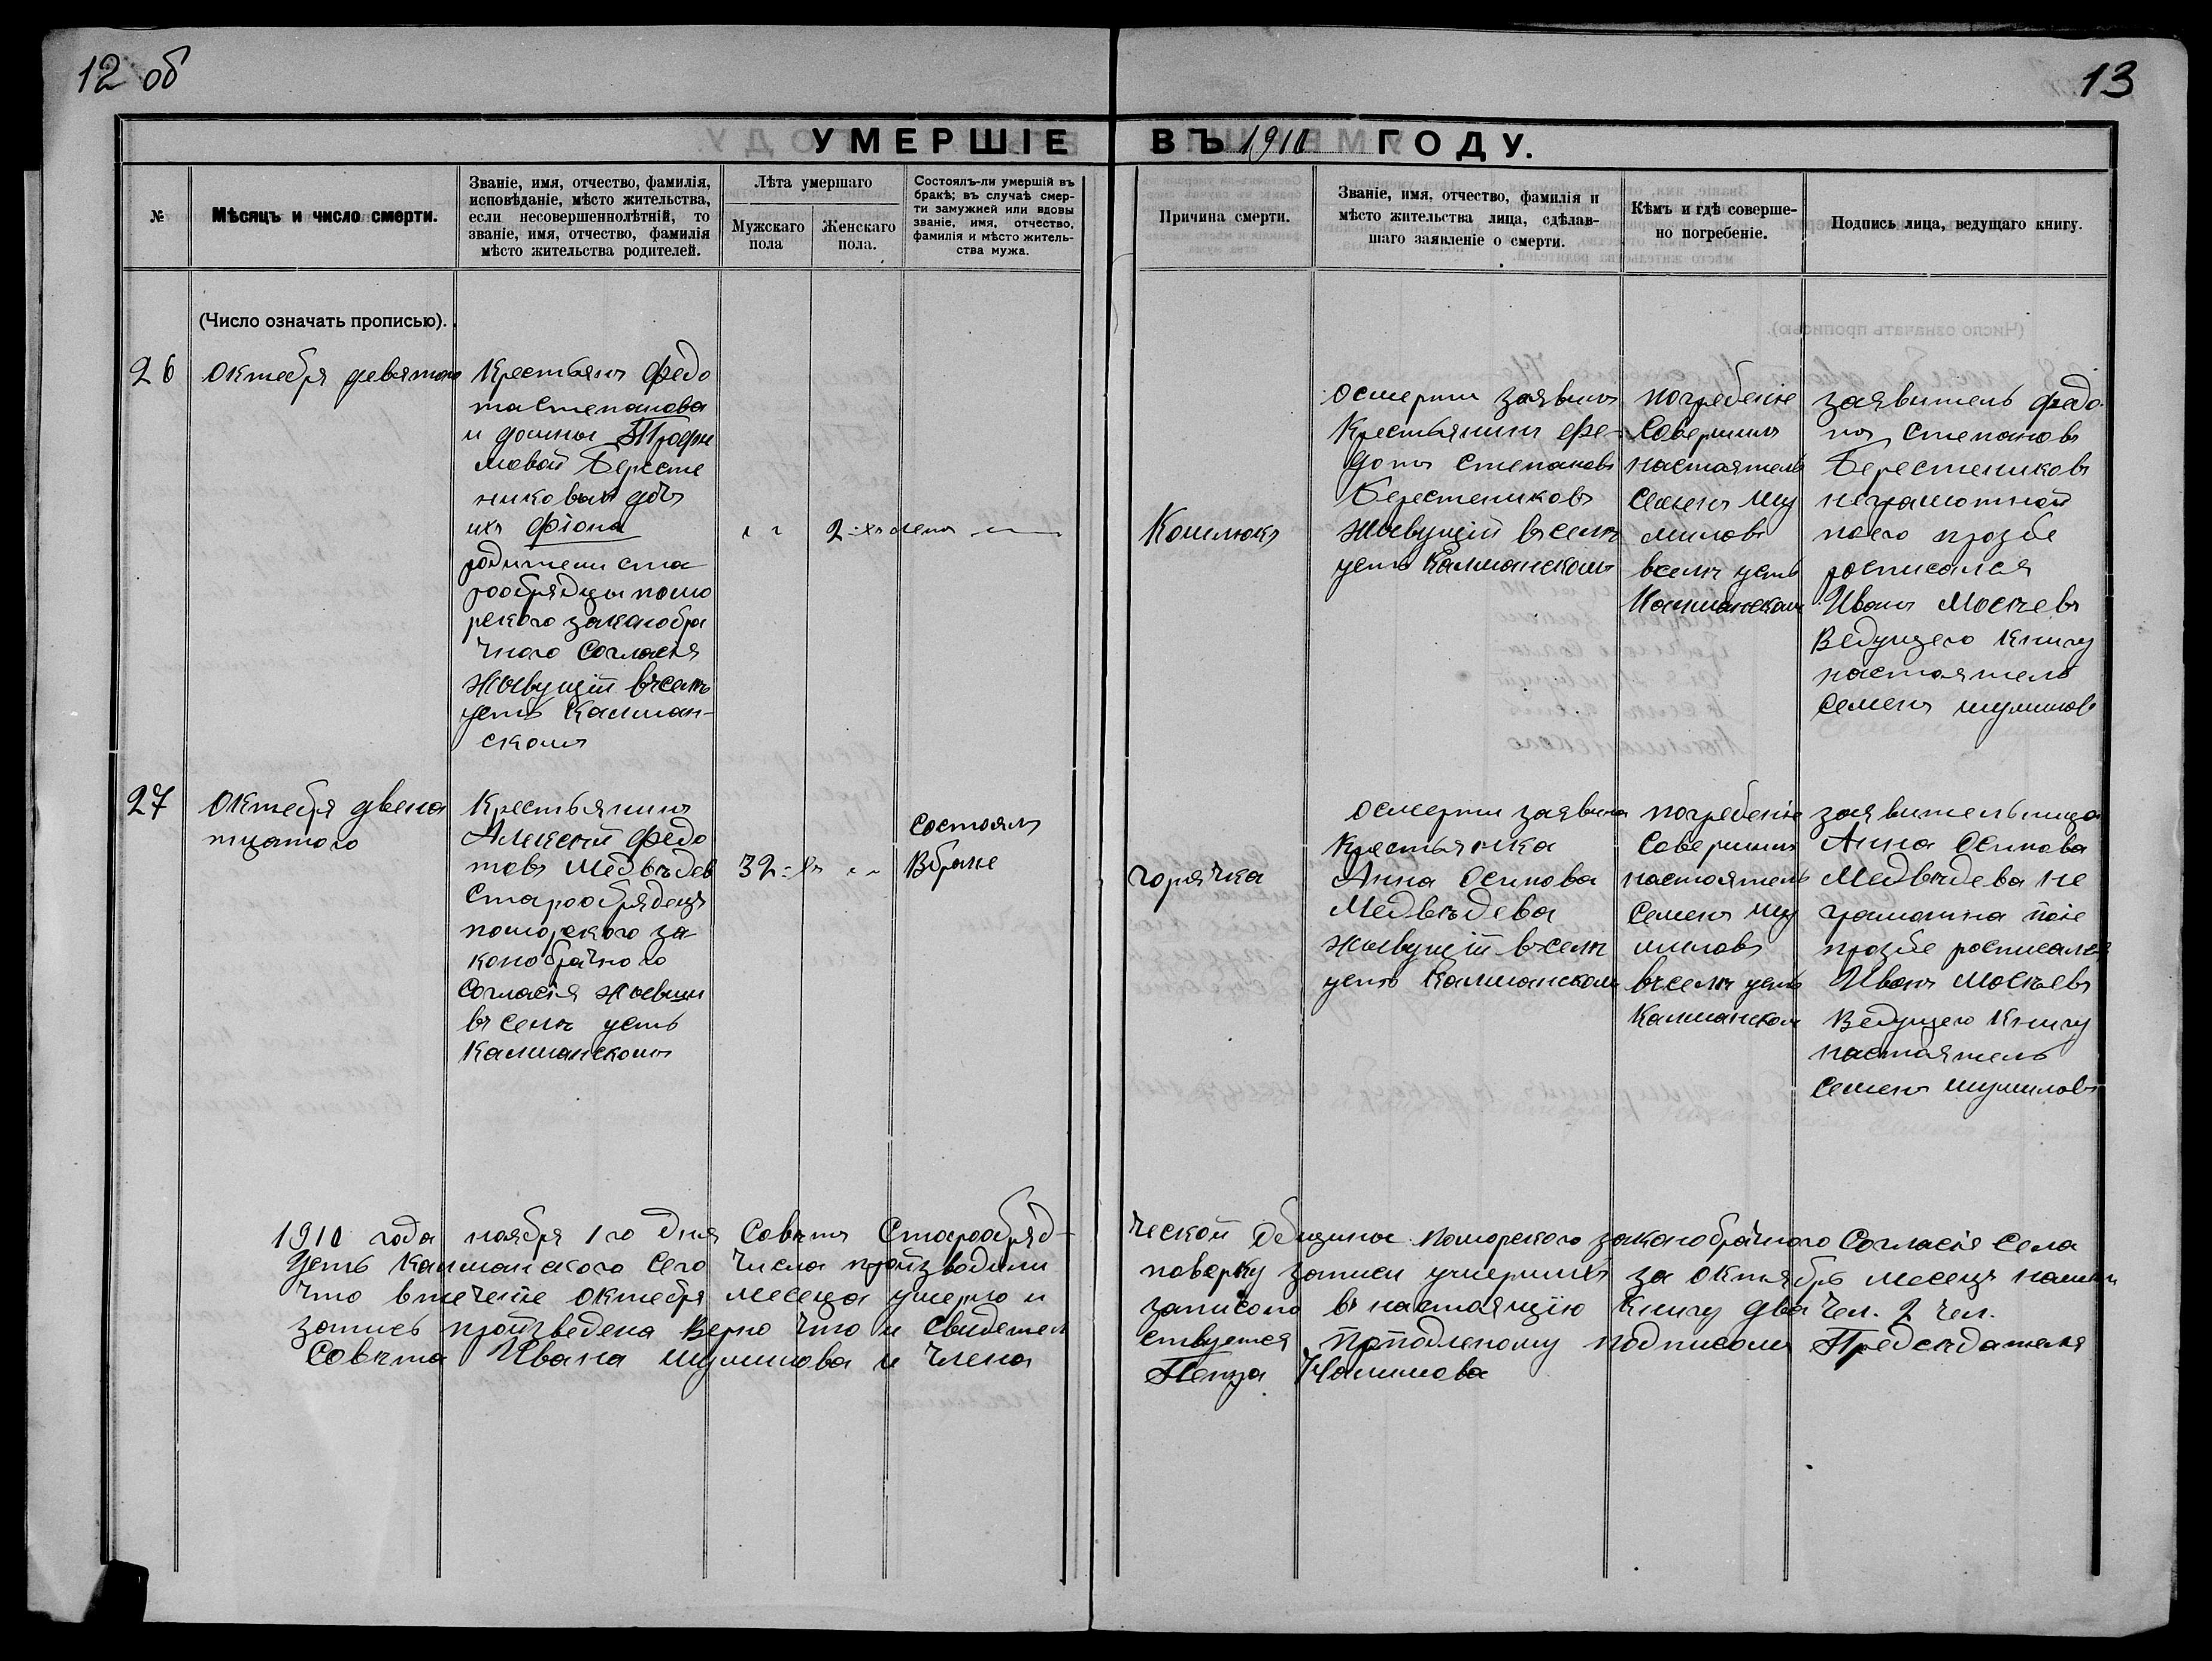 12 об
13
УМЕРШІЕ ВЪ 1910 ГОДУ.
№
Мѣсяцъ и число смерти.
Званіе, имя, отчество, фамилія,
исповѣданіе, мѣсто жительства,
если несовершеннолѣтній, то
званіе, имя, отчество, фамилія
мѣсто жительства родителей.
Лѣта умершаго
Мужскаго
пола
Женскаго
пола.
Состоялъ-ли умершій въ
бракѣ; въ случаѣ смер-
ти замужней или вдовы
званіе, имя, отчество,
фамилія и мѣсто житель-
ства мужа.
Причина смерти.
Званіе, имя, отчество, фамилія и
мѣсто жительства лица, сдѣлав-
шаго заявленіе о смерти.
Кѣмъ и гдѣ соверше-
но погребеніе.
Подпись лица, ведущаго книгу.
(Число означать прописью).
26
Октебря девятого
Крестьянъ Федо
та Степанова
и домны Трофи
мовой Бересте
никовых дочь
ихъ Фіона
родители ста
рообрядцы помо
рского законобра
чного Согласія
жывущій въ селѣ
усть Калман-
скомъ
2-хъ летъ
Кошлюкъ
осмерти заявилъ
Крестьянинъ Фе-
дотъ Степановъ
Берестениковъ
жывущій въ селѣ
усть Калманскомъ
погребеніе
Совершилъ
настоятель
Семенъ Шу
миловъ
вселѣ усть
Калманском
заявитель Федо
тъ Степановъ
Берестениковъ
неграмотной
поего прозбе
росписался
Иванъ Мосѣевъ
Ведущего Книгу
настоятель
Семенъ шумилов
27
Октебря двена
тцатого
Крестьянинъ
Алексѣй Федо
товъ Медвѣдев
Старообрядецъ
поморского за
конобрачного
Согласія жывущи
въ селѣ усть
Калманскомъ
32-хъ
состоялъ
Вбраке
горячка
осмерти заявила
Крестьянка
Анна Осипова
Медвѣдева
жывущій вселѣ
усть Калманском
погребеніе
Совершилъ
настоятель
Семенъ Шу
миловъ
вселѣ усть
Калманском
заявительница
Анна Осипова
Медвѣдева не
грамотна пое
прозбе росписался
Иванъ Мосѣевъ
Ведущего Книгу
настоятель
Семенъ шумиловъ
1910 года ноября 1 го дня Советъ Старообряд-
ческой Общины Поморского законобрачного Согласія Села
Усть Калманского Сего Числа произзводили
поверку записи умершихъ за Октябрь месецъ нашли
что втечение Октебря месеца умерло и
записоно въ настоящію Книгу два Чел. 2 чел.
запись произзведена Верно что и Свидетел
ствуется подписом Председателя
Совѣта Ивана шумилова и Члена
Петра Налимова